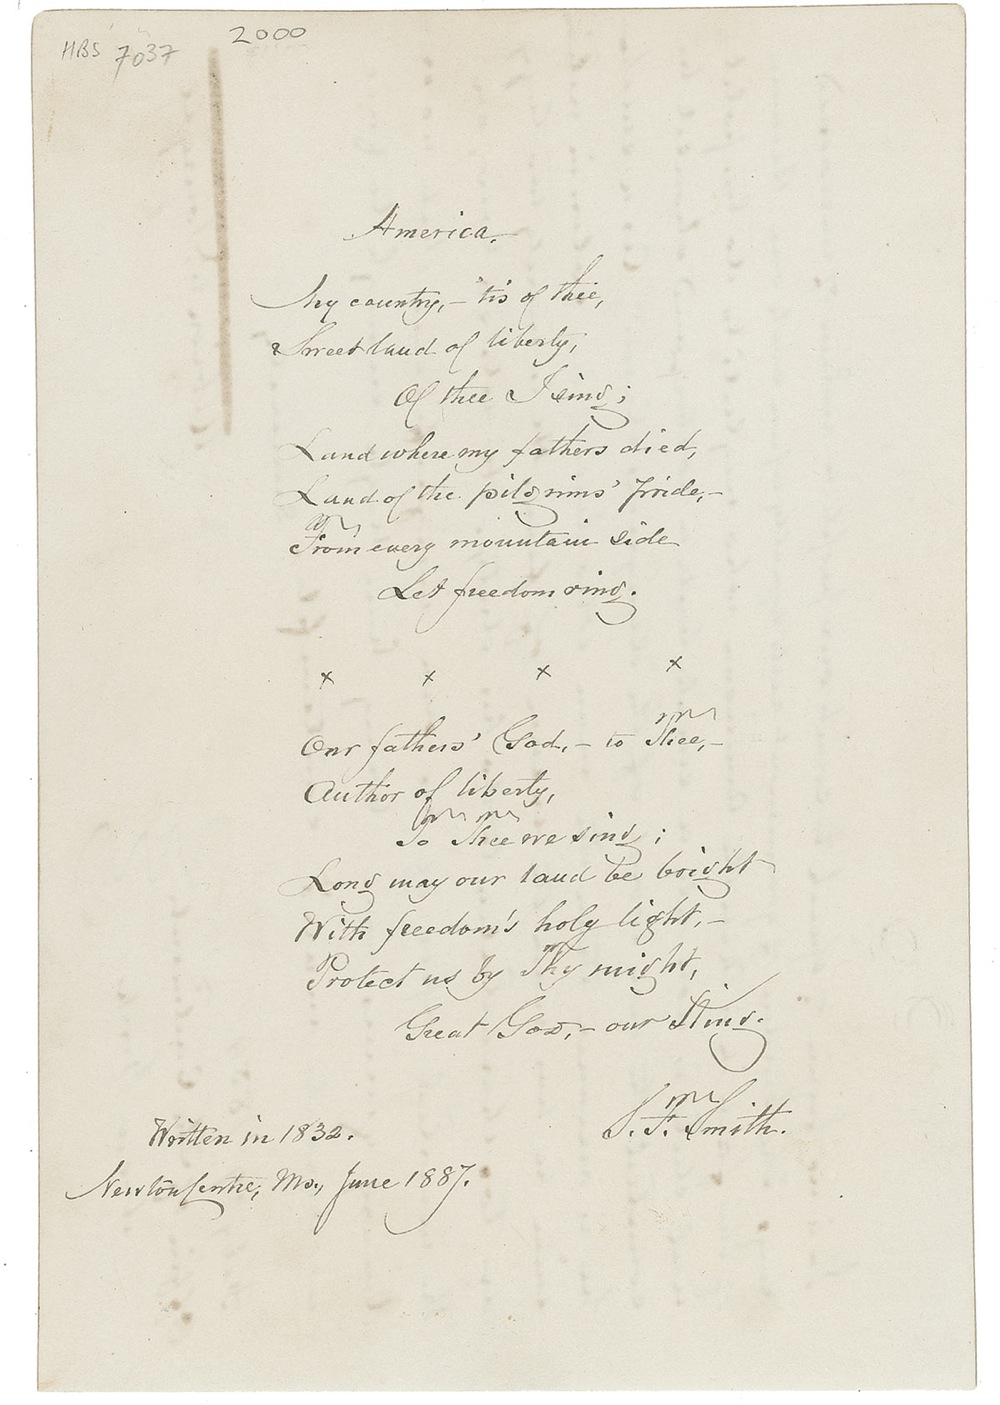 HBS 7037
2000
America.
My country,– 'tis of thee,
Sweet land of liberty;
Of thee I sing;
Land where my fathers died,
Land of the pilgrims' pride,–
From every mountain side
Let freedom ring.
x x x x
Our fathers' God,– to Thee,–
Author of liberty,
To Thee we sing;
Long may our land be bright
With freedom's holy light,–
Protect us by Thy might,
Great God,– our King.
S. F. Smith.
Written in 1832.
Newton Centre, Ms., June 1887.